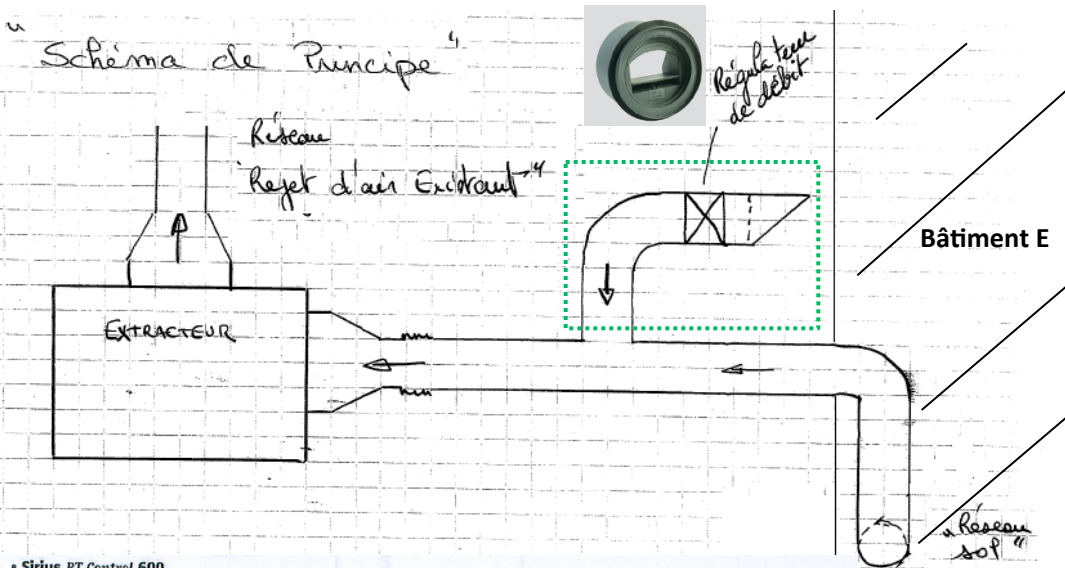 "Schéma de Principe"
Régulateur
de débit
Réseau
"Rejet d'air Existant"
Bâtiment E
EXTRACTEUR
"Réseau
SOP"
• Sirius PT Control 600